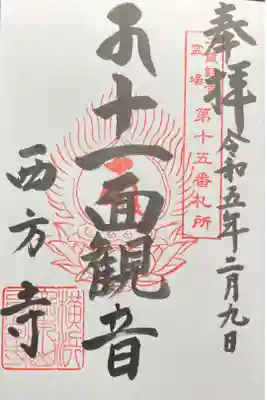 奉拝
令和五年二月九日
霊場
第十五番札所
十一面観音
西方寺
横浜